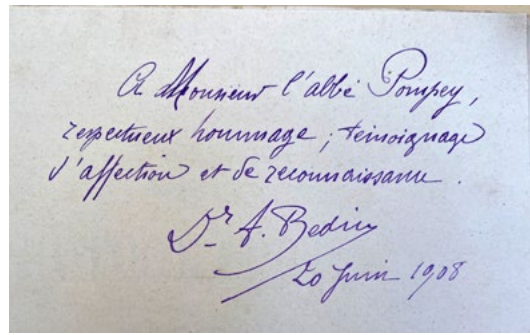 A Monsieur l'abbé Pompey,
respectueux hommage ; témoignage
d'affection et de reconnaissance.
Dr A. Bedin
20 Juin 1908